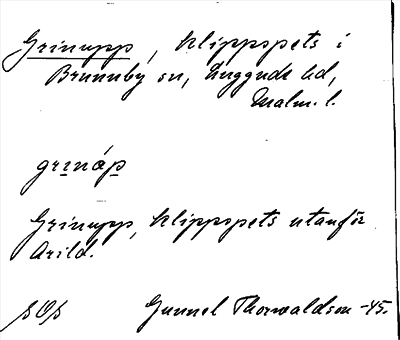 Grinupp, klippspets i
Brunnby sn, Luggude hd,
Malm. l.
grinóp
Grinupp, klippspets utanför
Arild.
Gunnel Thorwaldson -45.